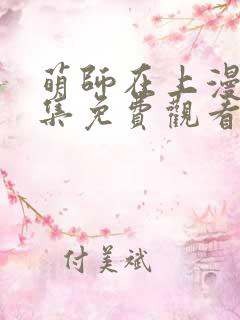 萌師在上漫
集免費觀看
付美斌